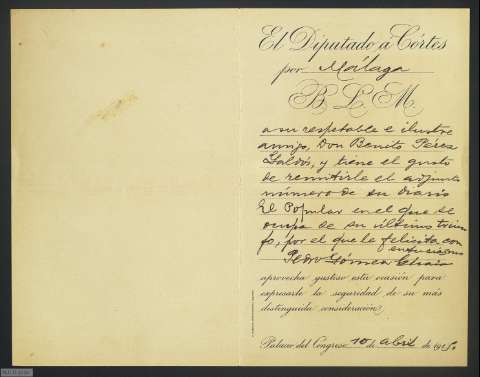 El Diputado à Córtes
por Málaga
B. L. M.
a su respetable e ilustre
amigo, Don Benito Pérez
Galdós, y tiene el gusto
de remitirle el adjunto
número de su diario
El Popular en el que se
ocupa de su último triun
fo, por el que le felicita con
entusiasmo
Pedro Gómez Chaix
aprovecha gustoso esta ocasión para
expresarle la seguridad de su más
distinguida consideración.
Palacio del Congreso 10 de abril de 191